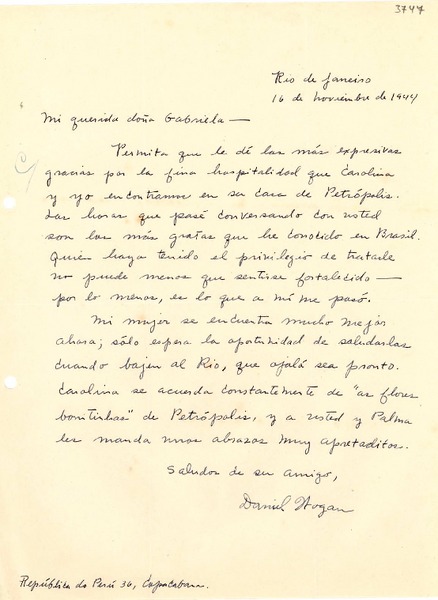 3747
Rio de Janeiro
16 de noviembre de 1944
Mi querida doña Gabriela—
Permita que le dé las más expresivas
gracias por la fina hospitalidad que Carolina
y yo encontramos en su casa de Petrópolis.
Las horas que pasé conversando con usted
son las más gratas que he conocido en Brasil.
Quien haya tenido el privilegio de tratarle
no puede menos que sentirse fortalecido—
por lo menos, es lo que a mí me pasó.
Mi mujer se encuentra mucho mejor
ahora; sólo espera la oportunidad de saludarlas
cuando bajen al Rio, que ojalá sea pronto.
Carolina se acuerda constantemente de "as flores
bonitinhas" de Petrópolis, y a usted y Palma
les manda unos abrazos muy apretaditos.
Saludos de su amigo,
Daniel Hogan
República do Perú 36, Copacabana.